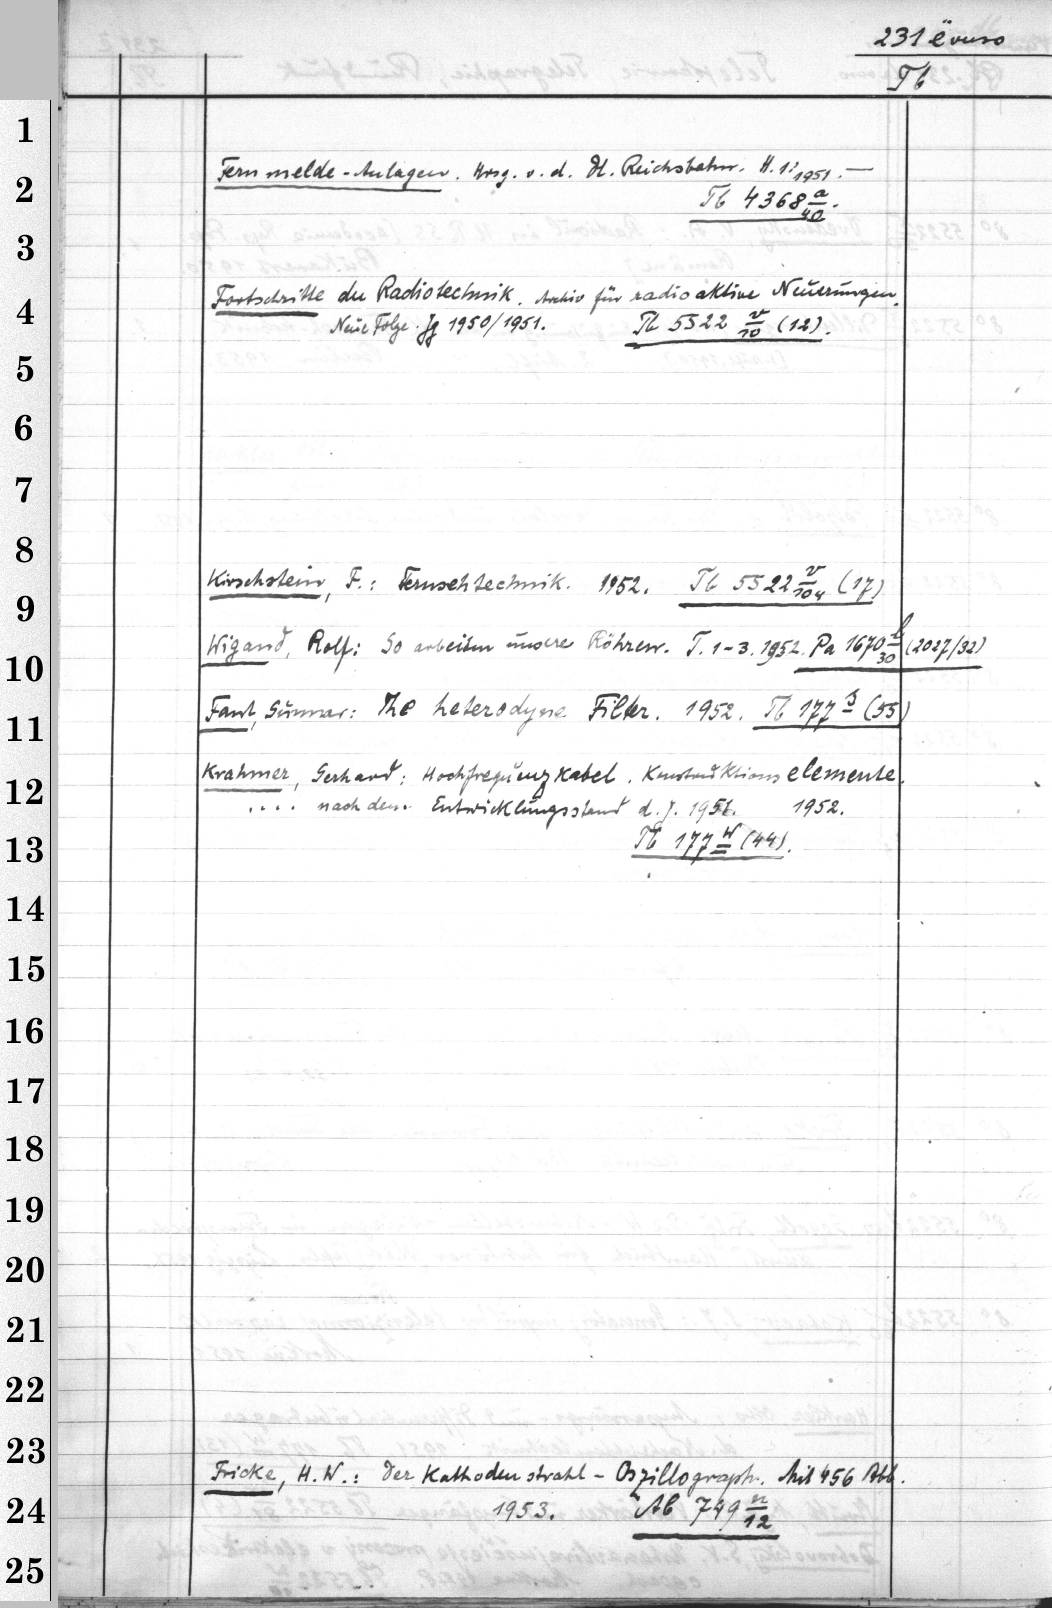 231
Tb
1
2
3
4
5
6
7
8
9
10
11
12
13
14
15
16
17
18
19
20
21
22
23
24
25
Fernmelde-Anlagen. Hrsg. v. d. Dt. Reichsbahn. H. 1: 1951. —
Tb 4368 a/40.
Fortschritte der Radiotechnik. Archiv für radioaktive Neuerungen.
Neue Folge. Jg 1950/1951. Tb 5522 v/10 (12).
Kirschstein, F.: Fernsehtechnik. 1952. Tb 5522 v/104 (17)
Wigand, Rolf: So arbeiten unsere Röhren. T. 1-3. 1952. Pa 1670 l/30 (2027/32)
Fant, Gunnar: The heterodyne Filter. 1952. Tb 177 s (55)
Krahmer, Gerhard: Hochfrequenzkabel. Konstruktionselemente.
.... nach dem Entwicklungsstand d. J. 1951. 1952.
Tb 177 w (44).
Fricke, H. W.: Der Kathodenstrahl-Oszillograph. Mit 456 Abb.
1953. Ab 749 n/12